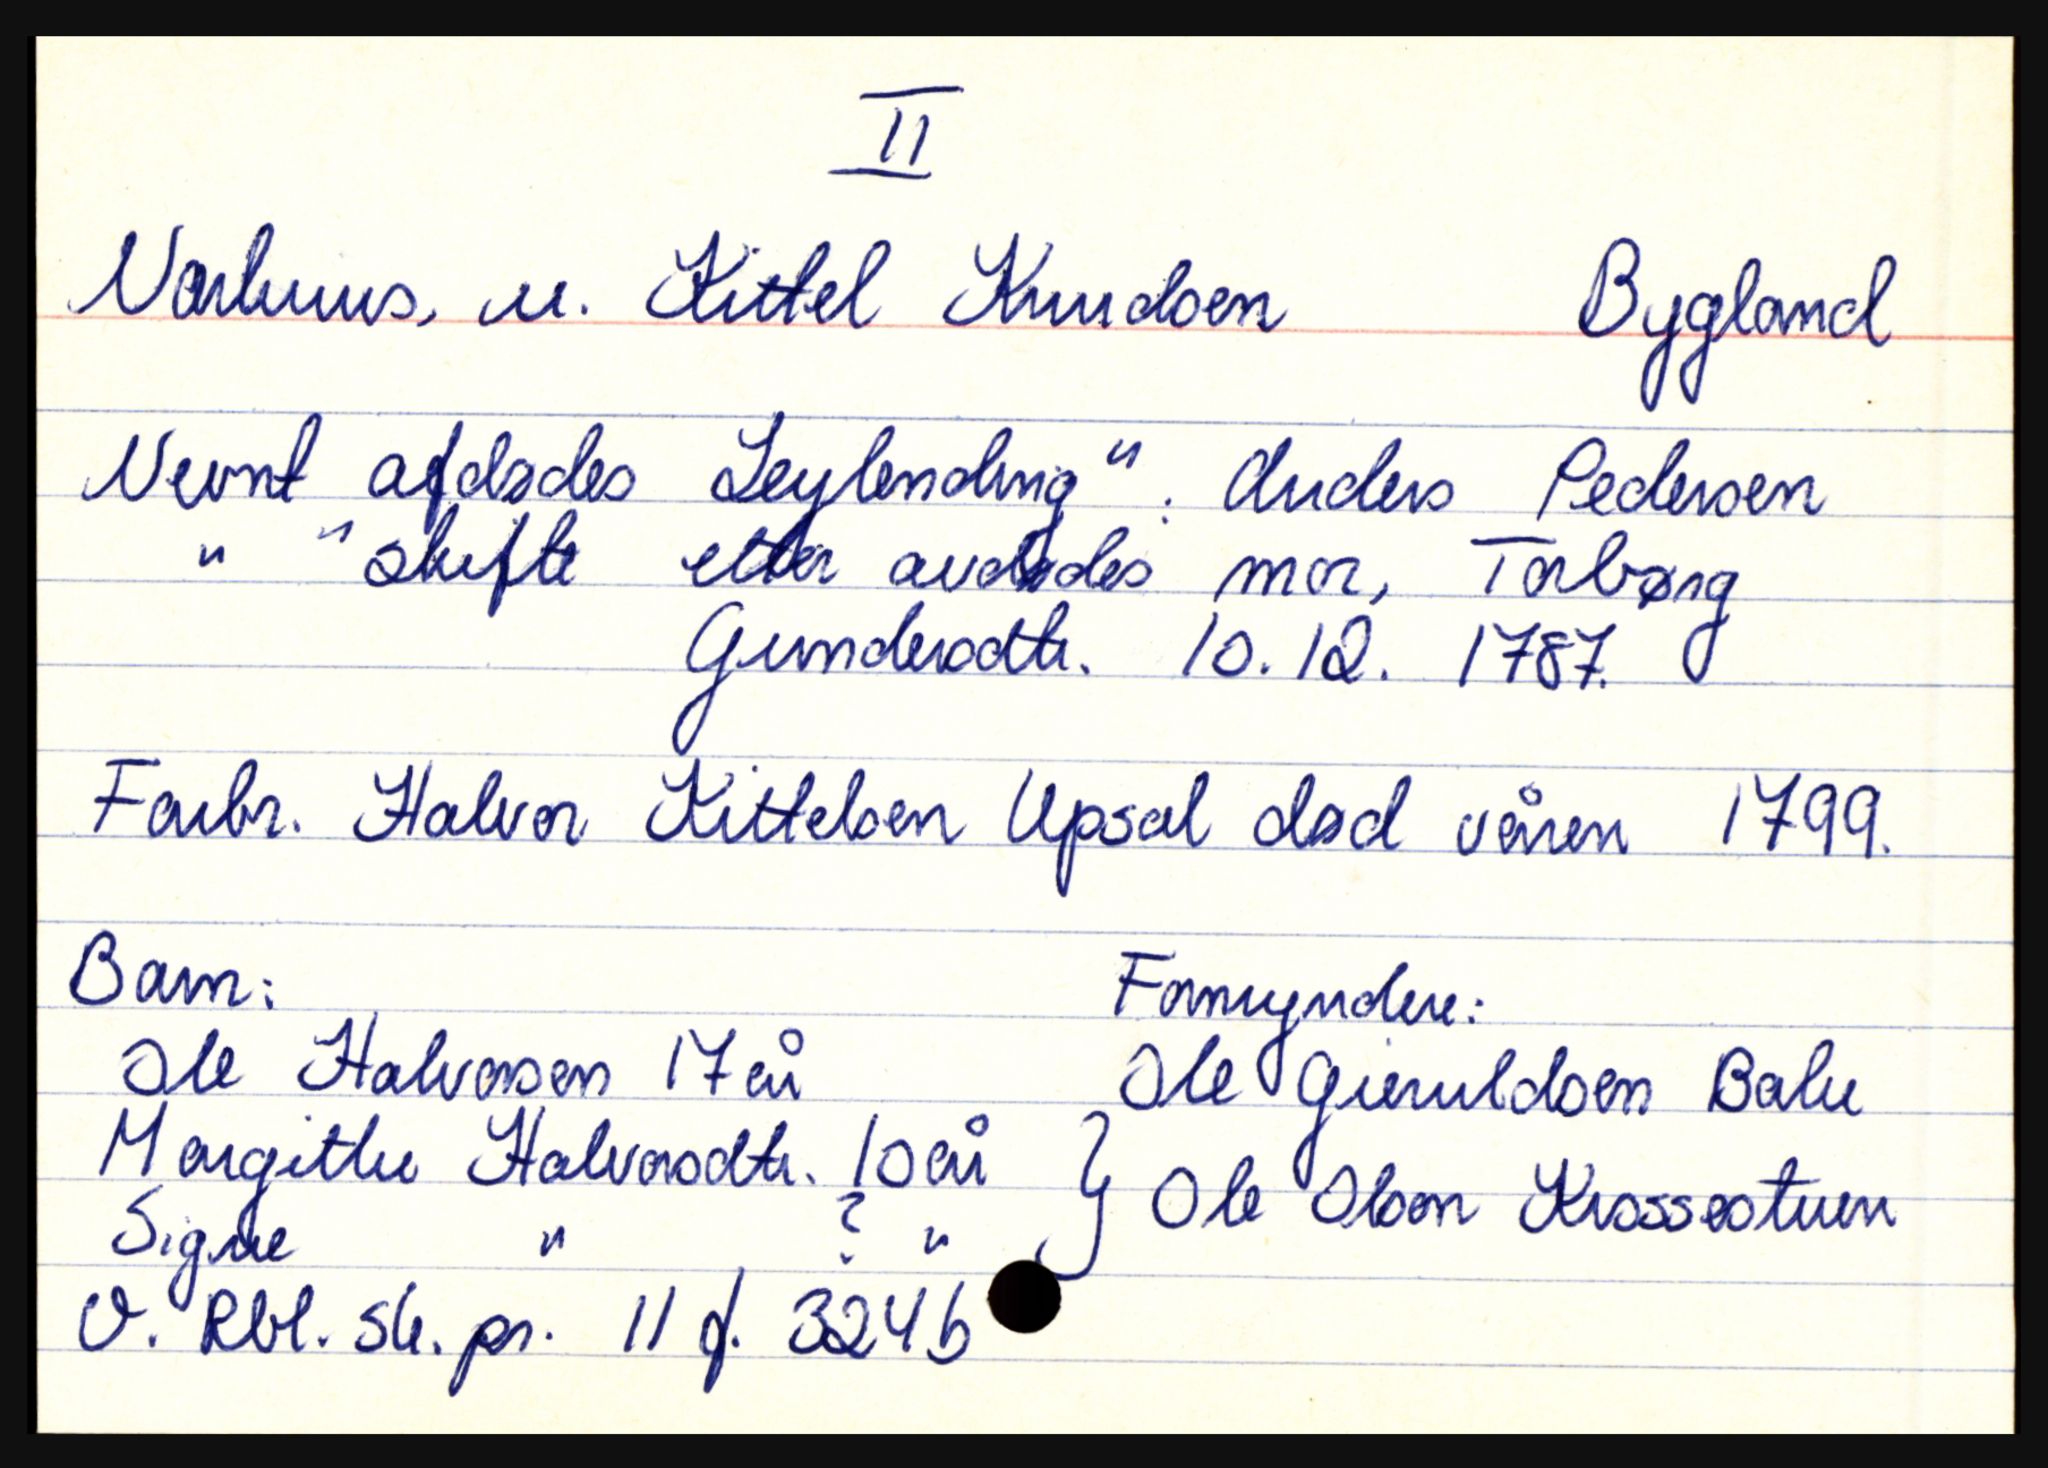 II
Narhuus, u. Kittel Knudsen Bygland
Nevnt afdødes Leylending": Anders Pedersen
" " skifte etter avdødes mor, Torbørg
Gundersdtr. 10.12. 1787.
Farbr. Halvor Kittelsen Upsal død våren 1799.
Barn: Formyndere:
Ole Halvorsen 17 år Ole Gieruldsen Bahe
Margithe Halvorsdtr. 10 år } Ole Olsen Krossestuen
Signe " ? "
V. Rbl. sk. pr. 11 f. 324b